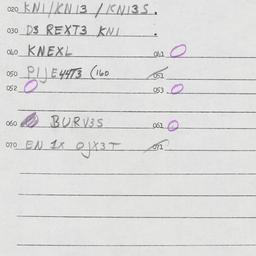 020 KN1/KN13 / KN13S.
030 D$ REXT3 KN1 .
040 KNEXL 041
050 P1JE44T3 (160 051
052 053
060 BURV3S 061
070 EN 1X OJX3T 071